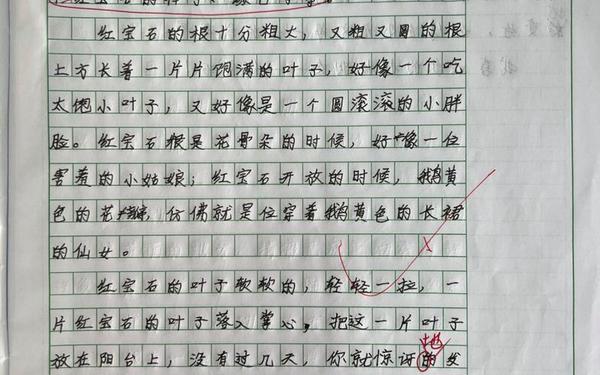 红宝石的根十分粗大，又粗又圆的根
上方长着一片片饱满的叶子，好像一个吃
太饱小叶子，又好像是一个圆滚滚的小胖
脸。红宝石根是花骨朵的时候，好像一位
害羞的小姑娘；红宝石开放的时候，鹅黄
色的花，仿佛就是位穿着鹅黄色的长裙
的仙女。
红宝石的叶子软软的，轻轻一拉，一
片红宝石的叶子落入掌心，把这一片叶子
放在阳台上，没有过几天，你就惊讶的发
地